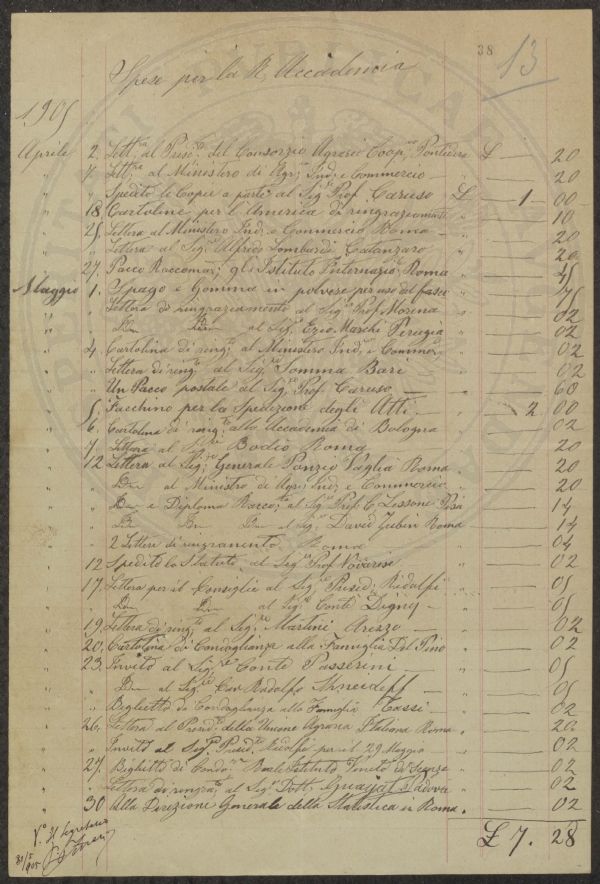 38
13
Spese per la R. Accademia
1905
Aprile 2. Lett.ra al Presid. del Consorzio Agrario Coop.vo Pontedera £ — 20
" 4. Lett.ra al Ministero di Agr. Ind. e Commercio — " — 20
" " Spedito le Copie a parte al Sig. Prof. Caruso £ — 1 — 00
" 18. Cartoline per l'America di ringraziamento " — 10
" 21. Lettera al Ministero Ind. e Commercio Roma — " — 20
" " Lettera al Sig. Alfredo Lombardi Catanzaro " — 20
" 27. Pacco Raccoman. gli Istituto Internazio. Roma " — 45
Maggio 1. Spago e Gomma in polvere per uso del fascio " — 75
" " Lettera di ringraziamento al Sig. Prof. Morena " — 02
" " D.a D.a al Sig. Ezio Marchi Perugia " — 02
" 4. Cartolina di ring. al Ministero Ind. e Commer. " — 02
" " Lettera di ring. al Sig. Somma Bari " — 02
" " Un Pacco postale al Sig. Prof. Caruso — " — 60
" 5. Facchino per la Spedizione degli Atti — " 2 00
" 6. Cartolina di ring. alla Accademia di Bologna " — 02
" 7. Lettera al Sig. Bodio Roma " — 20
" 12. Lettera al Sig. Generale Ponzio Vaglia Roma " — 20
" " D.a al Ministro di Agr. Ind. e Commercio " — 20
" " D.a e Diploma Racco. al Sig. Prof. C. Lessone Pisa " — 14
" " D.a D.a D.a al Sig. David Gubin Roma " — 14
" " 2 Lettere di ringramento Roma " — 04
" 12. Spedito lo Statuto al Sig. Prof. Novarese " — 02
" 17. Lettera per il Consiglio al Sig. Presid. Ridolfi " — 05
" " D.a D.a al Sig. Conte Digny — " — 05
" 19. Lettera di ring. al Sig. Martini Arezzo — " — 02
" 20. Cartolina di Condoglianza alla Famiglia Del Pino " — 02
" 23. Invito al Sig. Conte Passerini " — 05
" " D.a al Sig. Cav. Rodolfo — " — 05
" " Biglietto di Condoglianza alla Famiglia Tassi " — 02
" 26. Lettera al Presid. della Unione Agraria Italiana Roma " — 20
" " Invito al Sig. Presid. Ridolfi per il 29 Maggio " — 02
" 27. Biglietto di Condo. Reale Istituto Veneto di Scienze " — 02
" " Lettera di ringra. al Sig. Dott. Guayal Padova " — 02
" 30. Alla Direzione Generale della Statistica in Roma " — 02
£ 7. 28
V.o Il Segretario
31/5 905